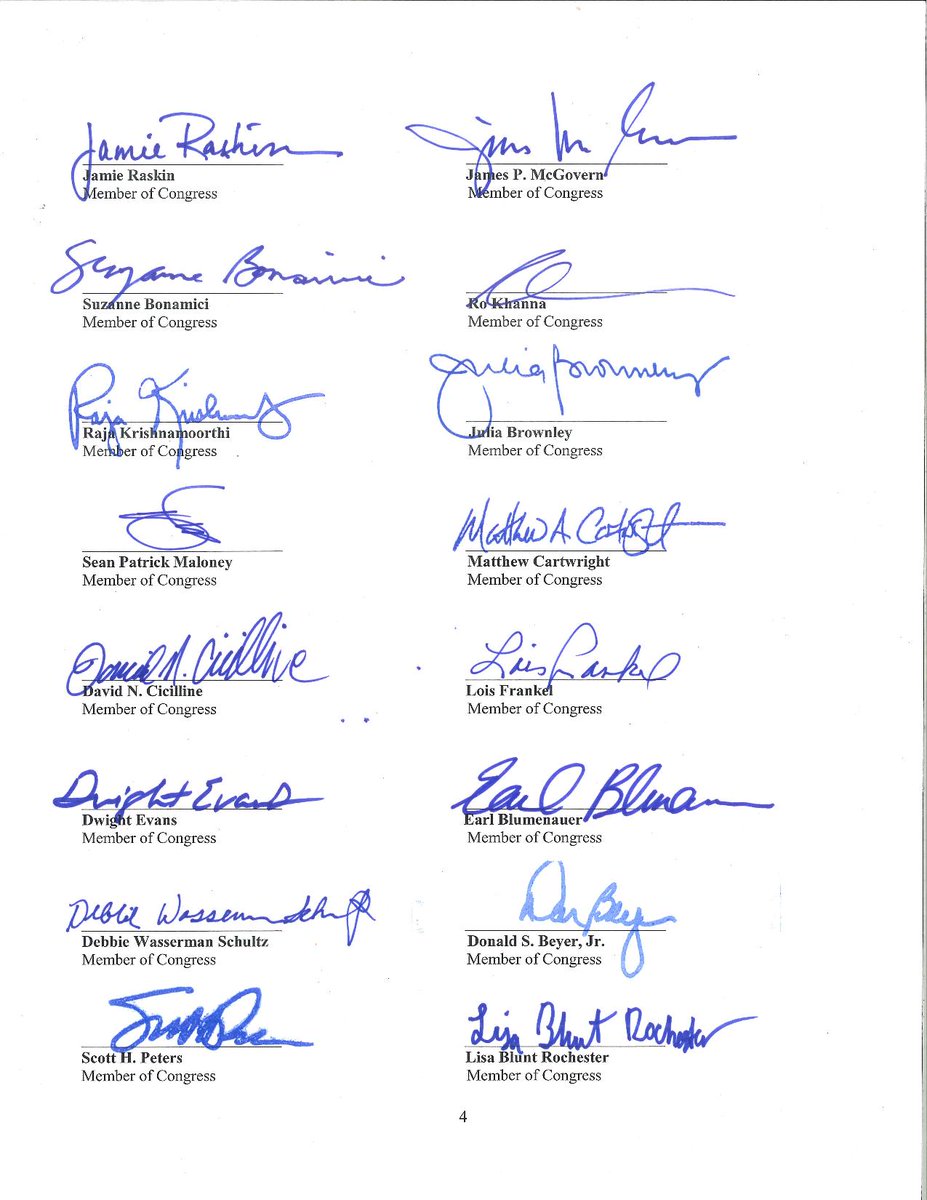 Jamie Raskin
Jamie Raskin
Member of Congress
James P. McGovern
Member of Congress
Suzanne Bonamici
Suzanne Bonamici
Member of Congress
Ro Khanna
Member of Congress
Raja
Raja Krishnamoorthi
Member of Congress
Julia Brownley
Julia Brownley
Member of Congress
Sean Patrick Maloney
Member of Congress
Matthew A. Cartwright
Matthew Cartwright
Member of Congress
David N. Cicilline
David N. Cicilline
Member of Congress
Lois Frankel
Lois Frankel
Member of Congress
Dwight Evans
Dwight Evans
Member of Congress
Earl
Earl Blumenauer
Member of Congress
Debbie Wasserman Schultz
Debbie Wasserman Schultz
Member of Congress
Don Beyer
Donald S. Beyer, Jr.
Member of Congress
Scott H. Peters
Member of Congress
Lisa Blunt Rochester
Lisa Blunt Rochester
Member of Congress
4